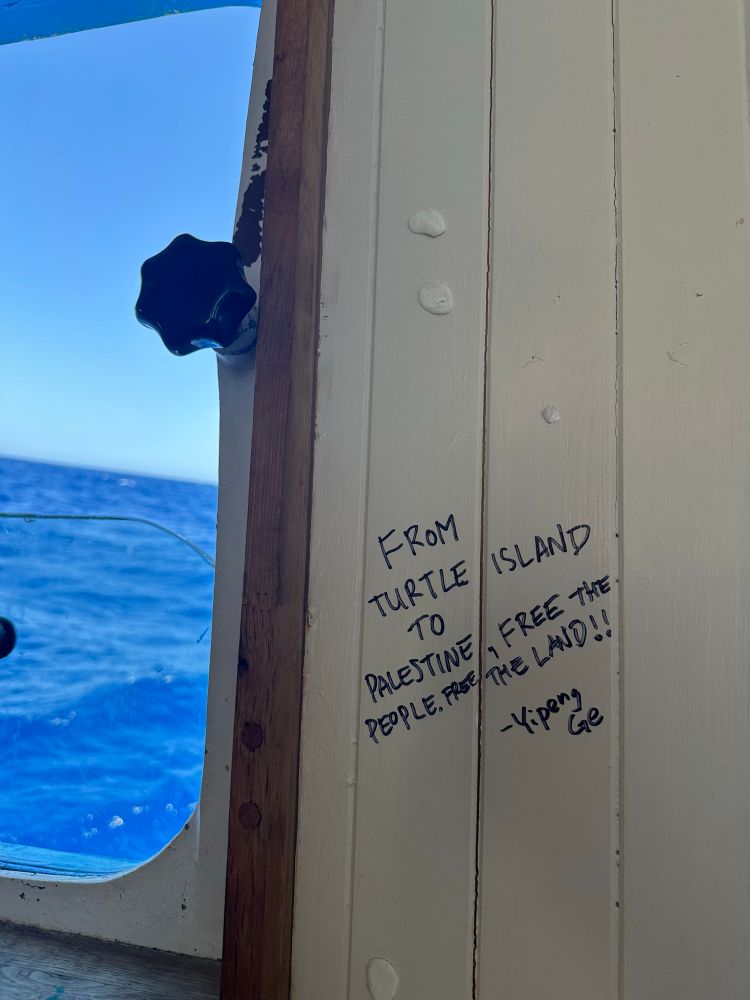 FROM
TURTLE ISLAND
TO
PALESTINE, FREE THE
PEOPLE. FREE THE LAND!!
-Yipeng
Ge